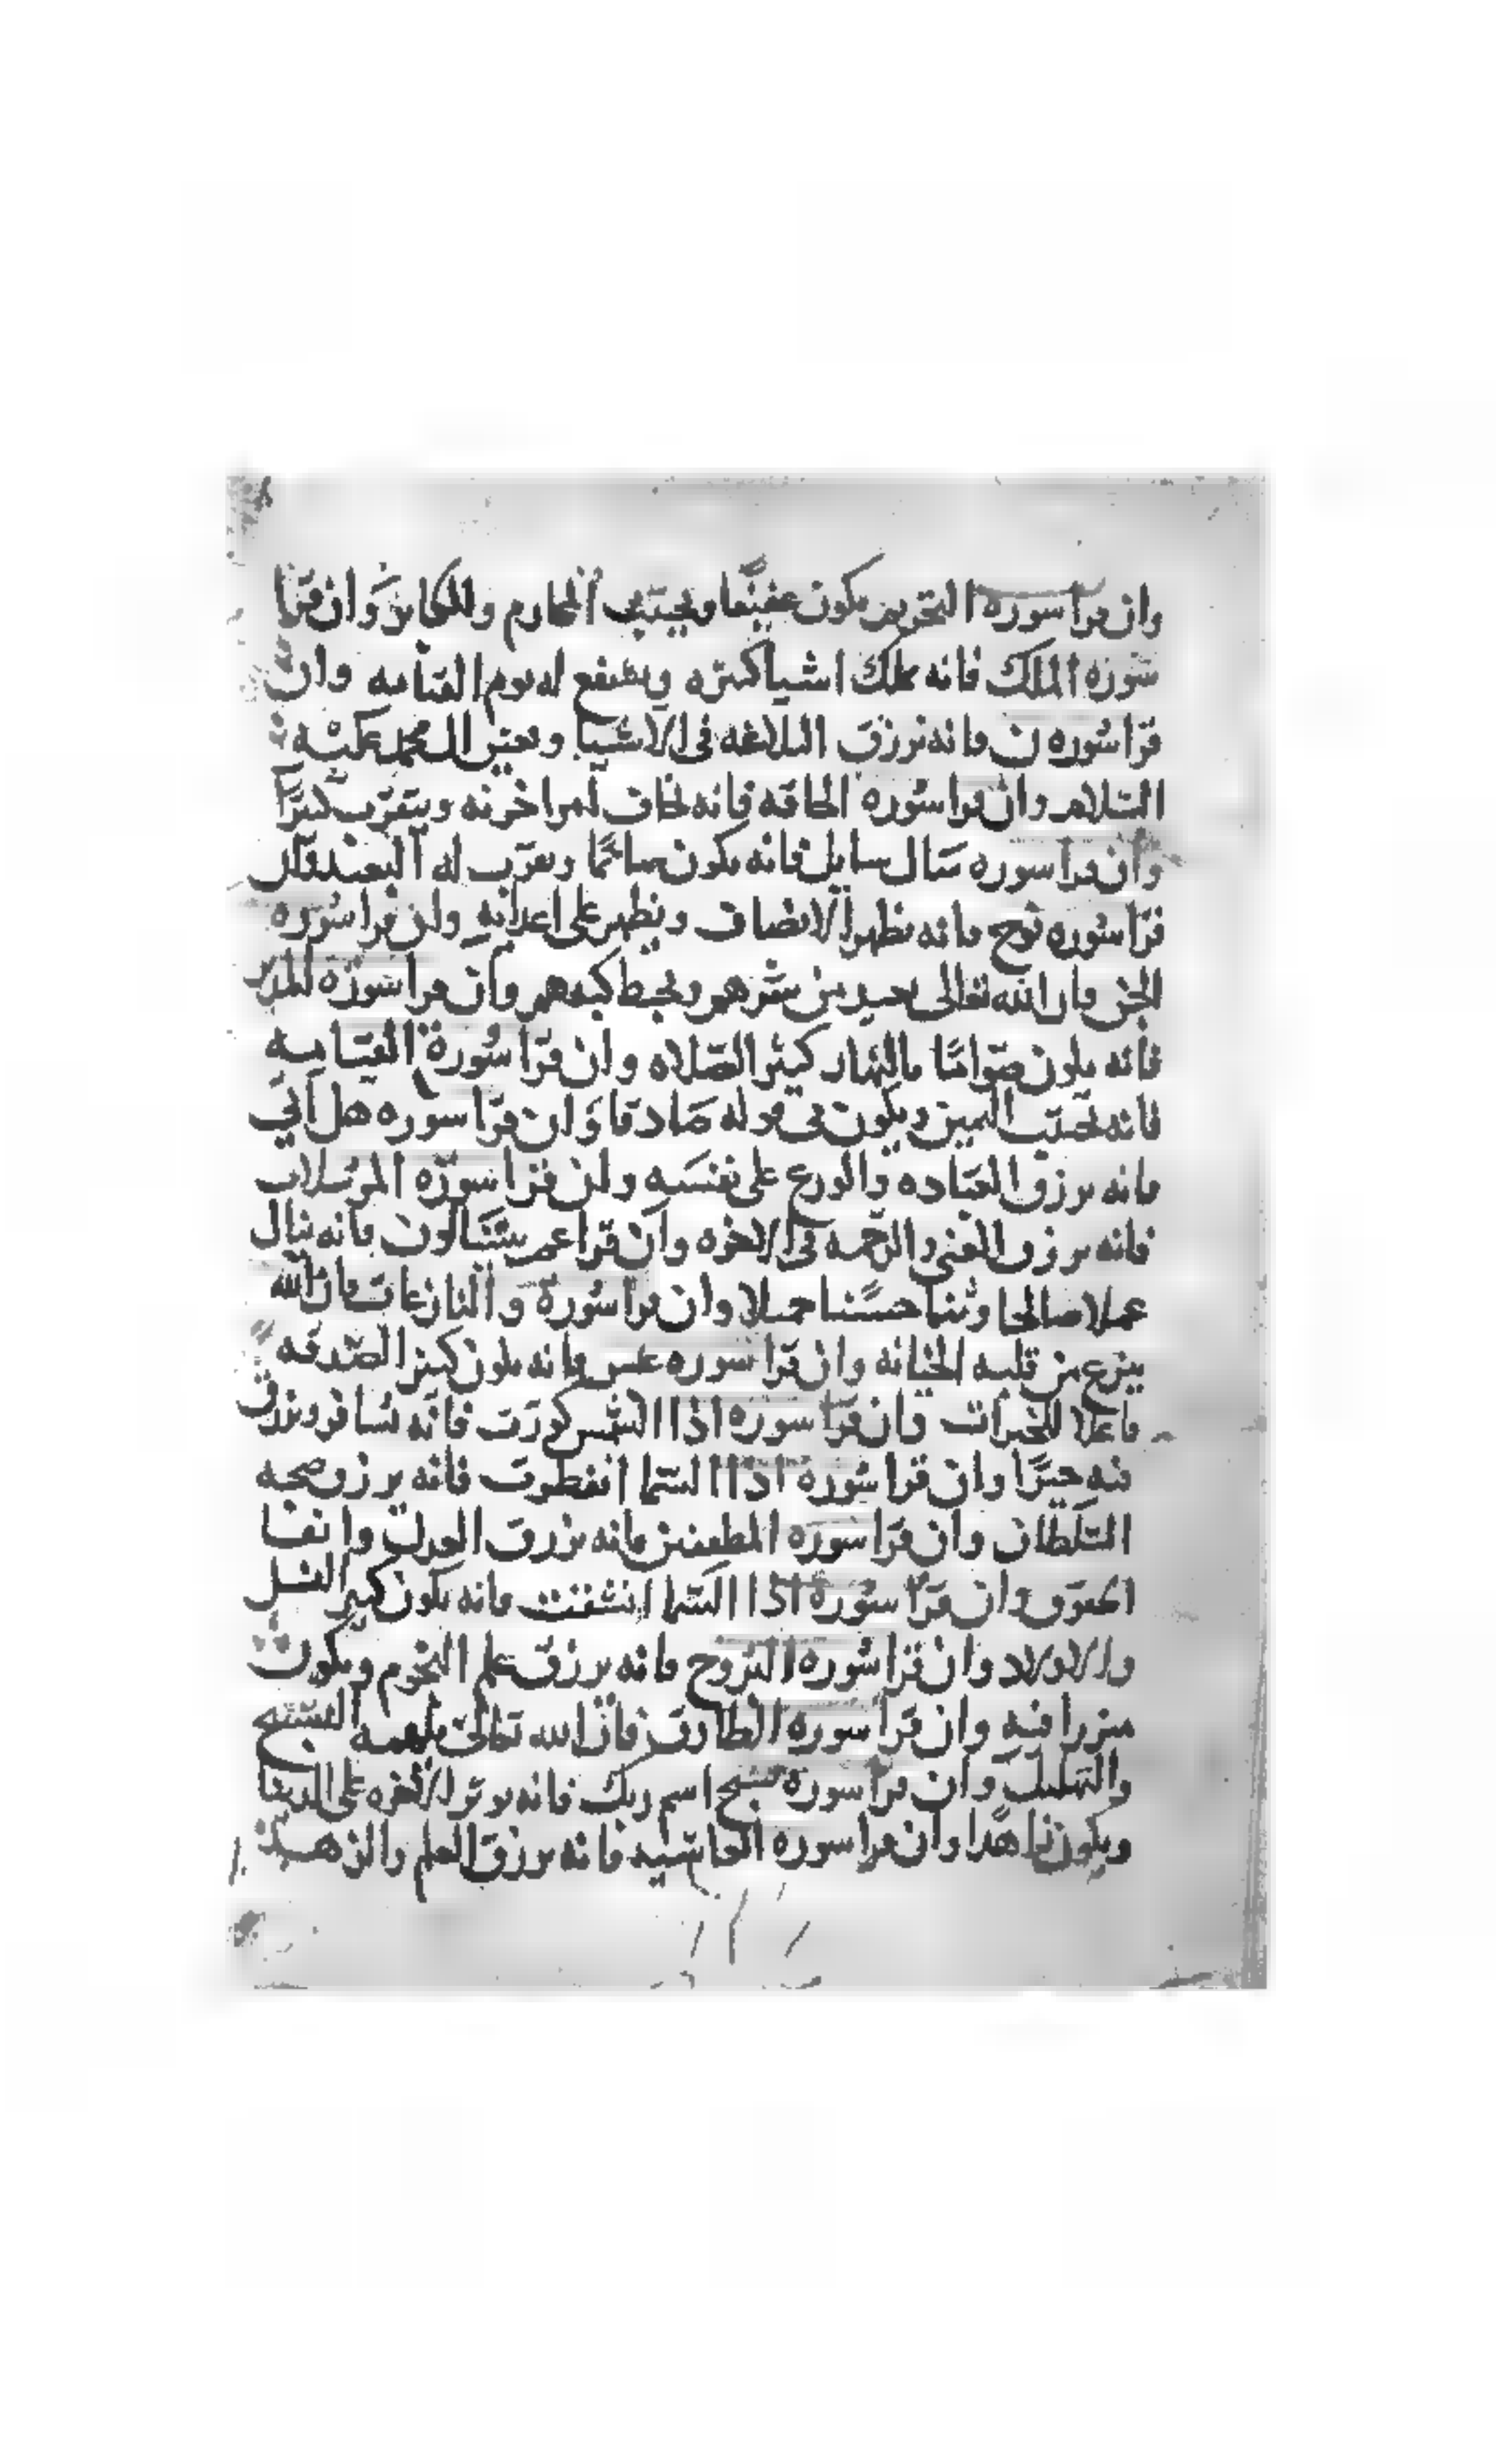 وان قرا سوره التحريم يكون عفيفا ويجتنب المحارم والمكابر وان قرا
سوره الملك فانه يملك اشيا كثيره ويشفع له يوم القيامه وان
قرا سوره ن فانه يرزق البلاغه في الاشيا ويعين ال محمد عليه
السلام وان قرا سوره الحاقه فانه يخاف لامر اخرته ويتقرب كثيرا
وان قرا سوره سال سايل فانه يكون صائما ويقرب له البعيد
قرا سوره نوح فانه يظهر الانصاف ويظهر على اعدائه وان قرا سوره
الجن فان الله تعالى من شرهم ويحيط كيدهم وان قرا سورة المدثر
فانه يكون صواما بالنهار كثير الصلاه وان قرا سورة القيامه
فانه تجتنب اليمين ويكون في قوله صادقا وان قرا سوره هل اتى
فانه يرزق العباده والورع على نفسه وان قرا سورة المرسلات
فانه يرزق الغنى والرحمه في الاخره وان قرا عم يتسالون فانه ينال
عملا صالحا وثنا حسنا جميلا وان قرا سورة والنازعات فان الله
ينزع من قلبه الخيانه وان قرا سوره عبس فانه يكون كثير الصدقه
فاعلا للخيرات وان قرا سوره اذا الشمس كورت فانه يسافر ويرزق
فيه خيرا وان قرا سورة اذا السما انفطرت فانه يرزق صحبه
السلطان وان قرا سوره المطففين فانه يرزق العدل وايفا
الحقوق وان قرا سورة اذا السما انشقت فانه يكون كثير النسل
والاولاد وان قرا سوره البروج فانه يرزق علم النجوم ويكون
مبرزا فيه وان قرا سوره الطارق فان الله تعالى يلهمه التسبيح
والتهليل وان قرا سورة سبح اسم ربك فانه يوثر الاخره على الدنيا
ويكون زاهدا وان قرا سوره الغاشيه فانه يرزق العلم والزهد